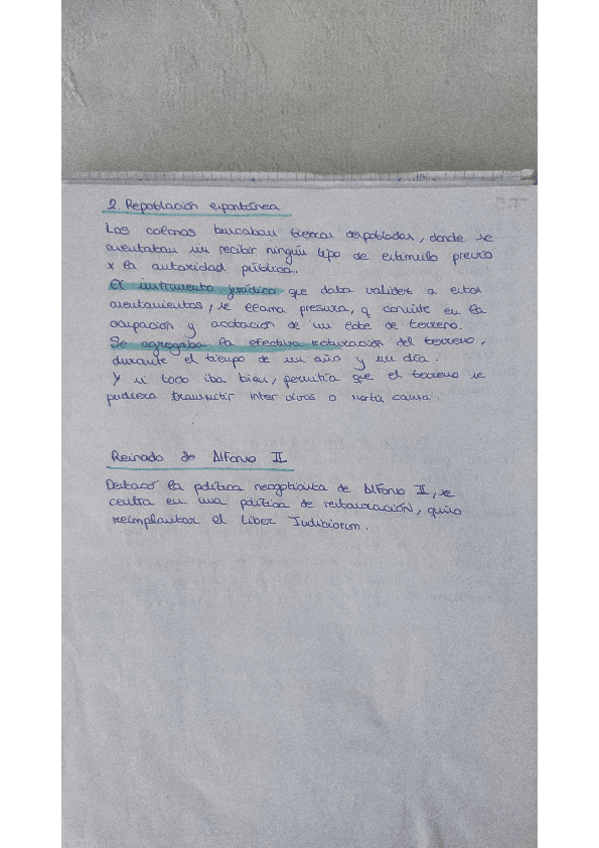 2. Repoblación espontánea
Los colonos buscaban tierras despobladas, donde se
asentaban sin recibir ningún tipo de estímulo previo
x la autoridad pública.
El instrumento jurídico que daba validez a estos
asentamientos, se llama presura, q consiste en la
ocupación y acotación de un lote de terreno.
Se agregaba la efectiva roturación del terreno,
durante el tiempo de un año y un día.
Y si todo iba bien, permitía que el terreno se
pudiera transmitir inter vivos o mortis causa.
Reinado de Alfonso II
Destacó la política neogoticista de Alfonso II, se
centra en una política de restauración, quiso
reimplantar el Liber Iudiciorum.